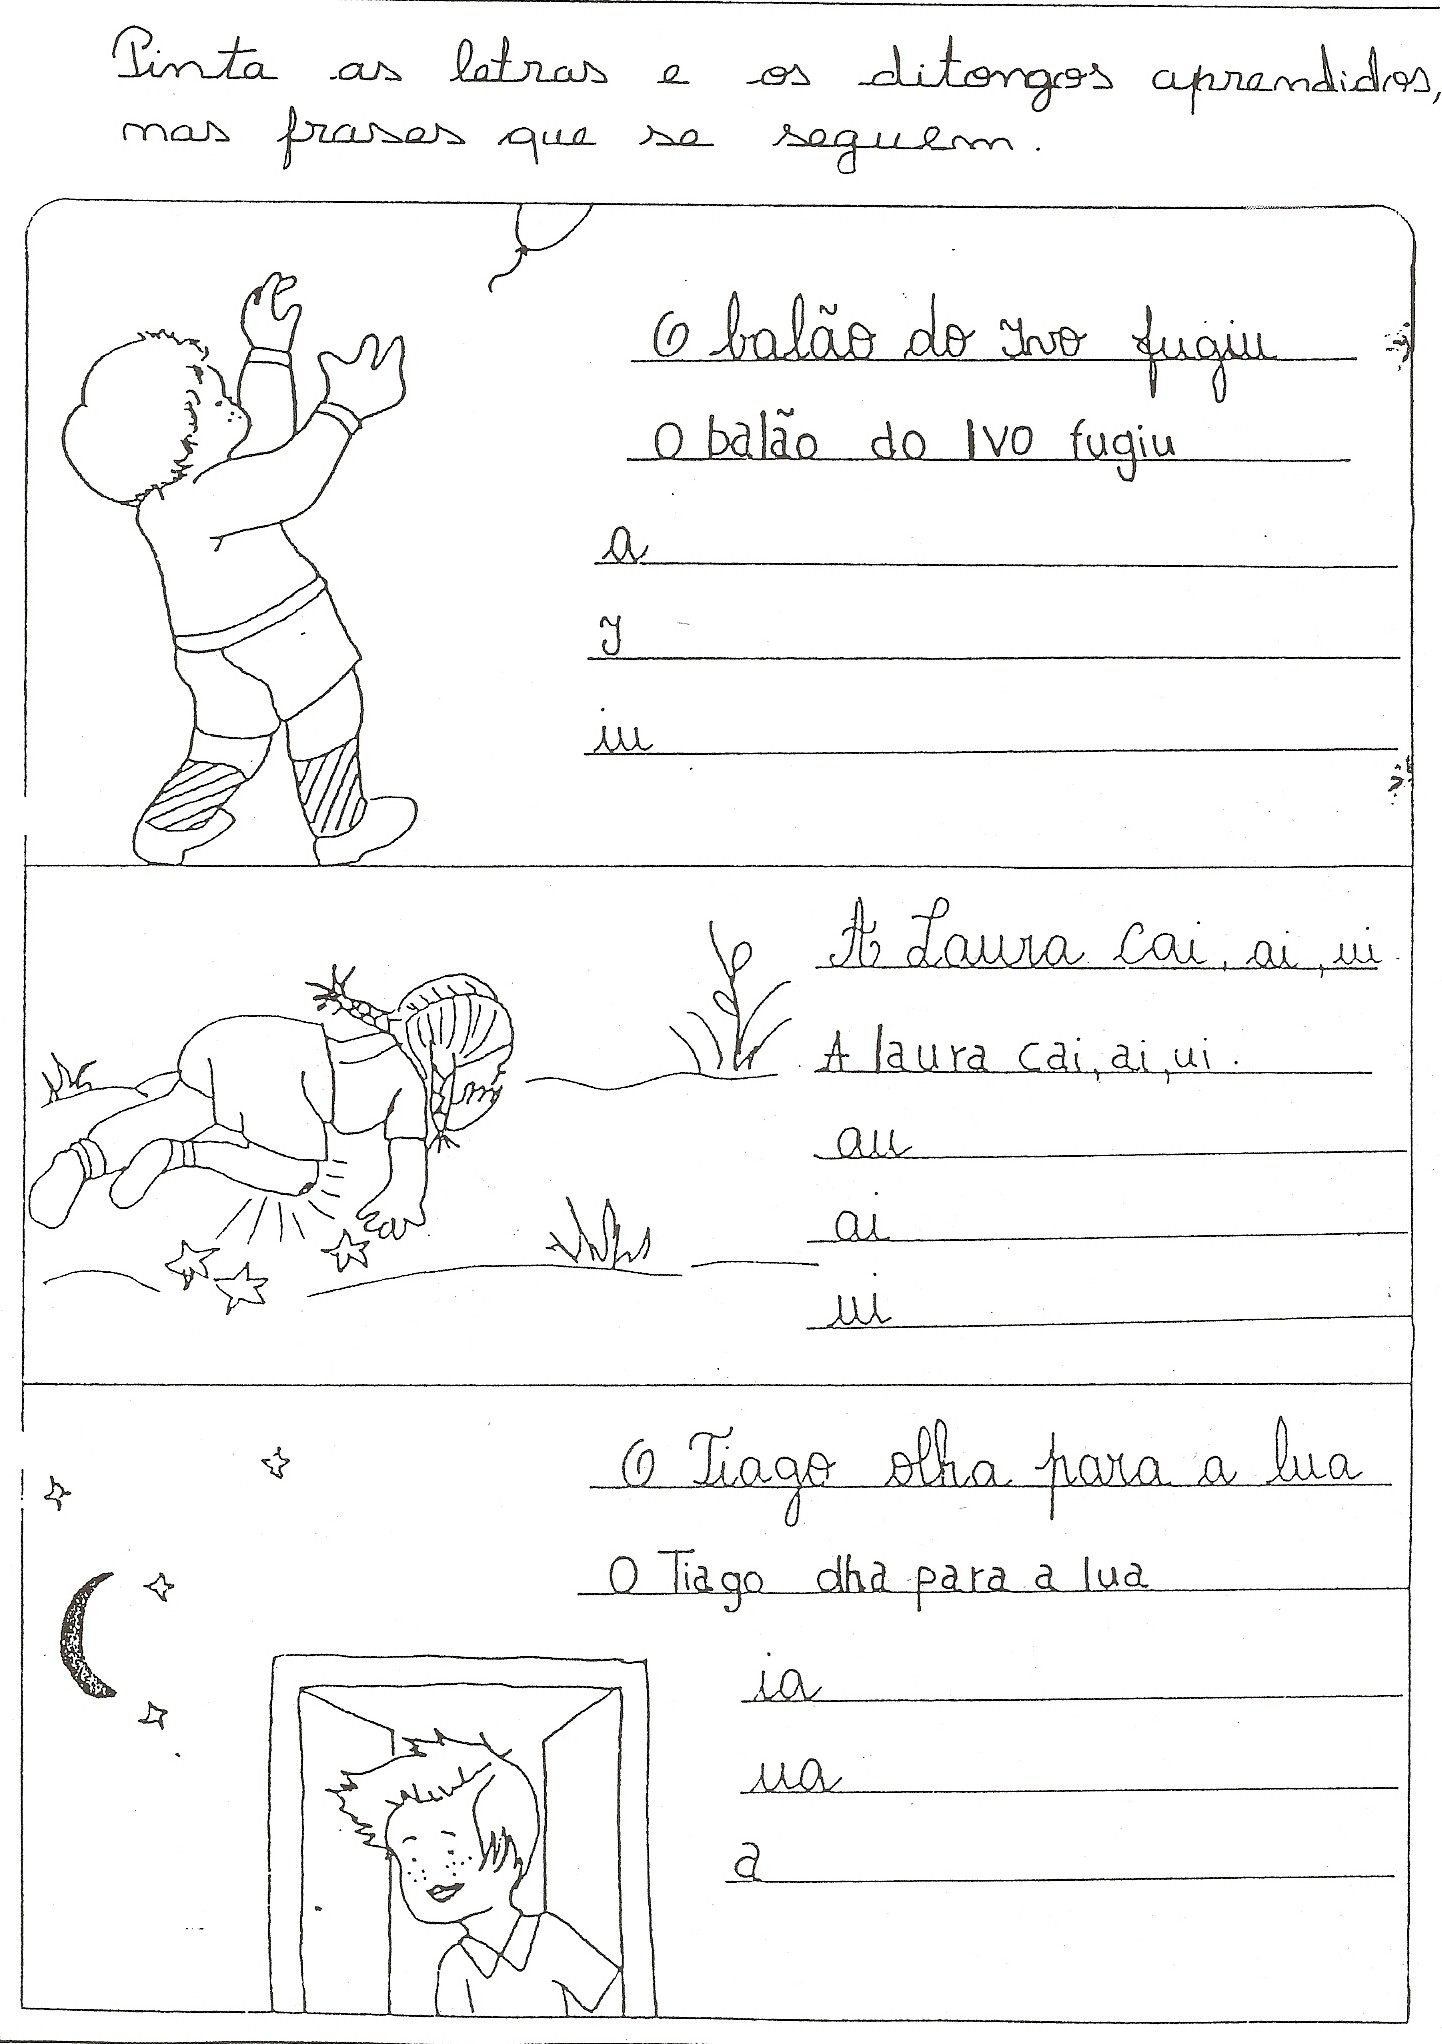 Pinta as letras e os ditongos aprendidos,
nas frases que se seguem.
O balão do Ivo fugiu
O balão do Ivo fugiu
a
I
iu
A Laura cai, ai, ui.
A laura cai, ai, ui.
au
ai
ui
O Tiago olha para a lua
O Tiago olha para a lua
ia
ua
a